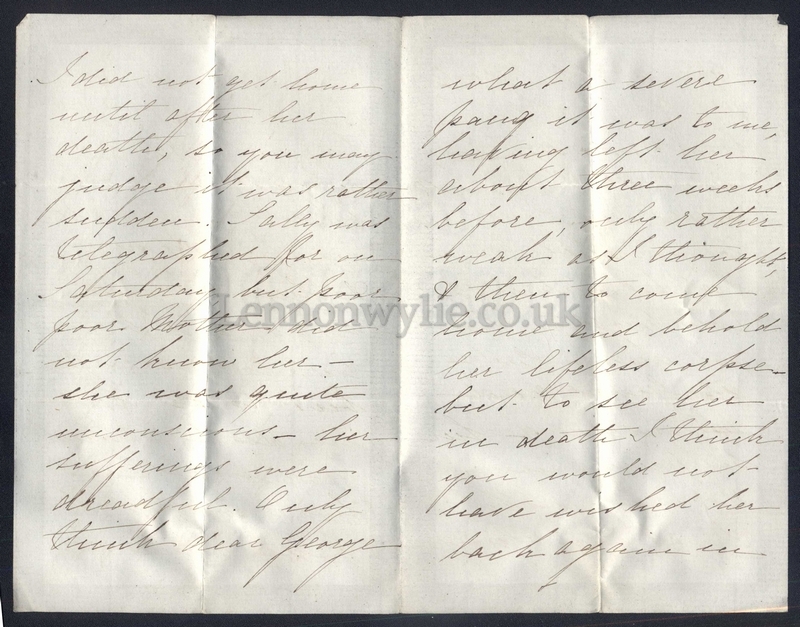 I did not get home
until after her
death, so you may
judge it was rather
sudden. Sally was
telegraphed for on
Saturday but poor
poor Mother did
not know her –
she was quite
unconscious – her
sufferings were
dreadful. Only
think dear George
what a severe
pang it was to me,
having left her
about three weeks
before, only rather
weak as I thought,
& then to come
home and behold
her lifeless corpse –
but to see her
in death I think
you would not
have wished her
back again in
Lennonwylie.co.uk